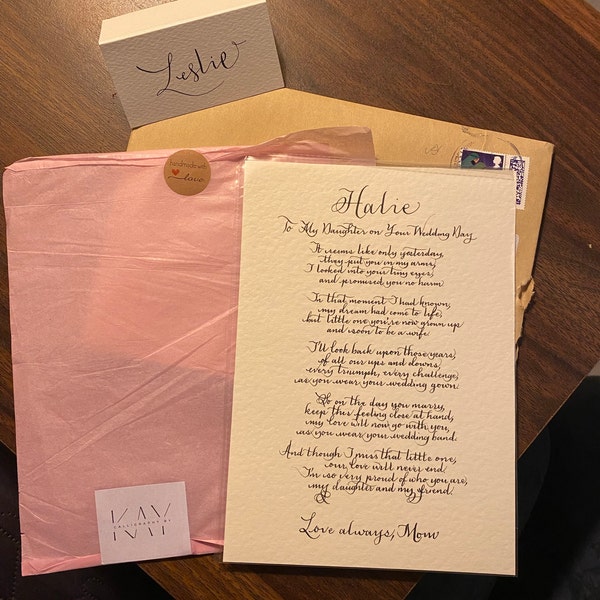 Leslie
handmade with
love
Halie
To My Daughter on Your Wedding Day
It seems like only yesterday,
they put you in my arms,
I looked into your tiny eyes,
and promised you no harm.
In that moment I had known,
my dream had come to life,
but little one you're now grown up
and soon to be a wife.
I'll look back upon those years,
of all our ups and downs,
every triumph, every challenge,
as you wear your wedding gown.
So on the day you marry,
keep this feeling close at hand,
my love will now go with you,
as you wear your wedding band.
And though I miss that little one,
our love will never end.
I'm so very proud of who you are,
my daughter and my friend.
Love always, Mom
CALLIGRAPHY BY